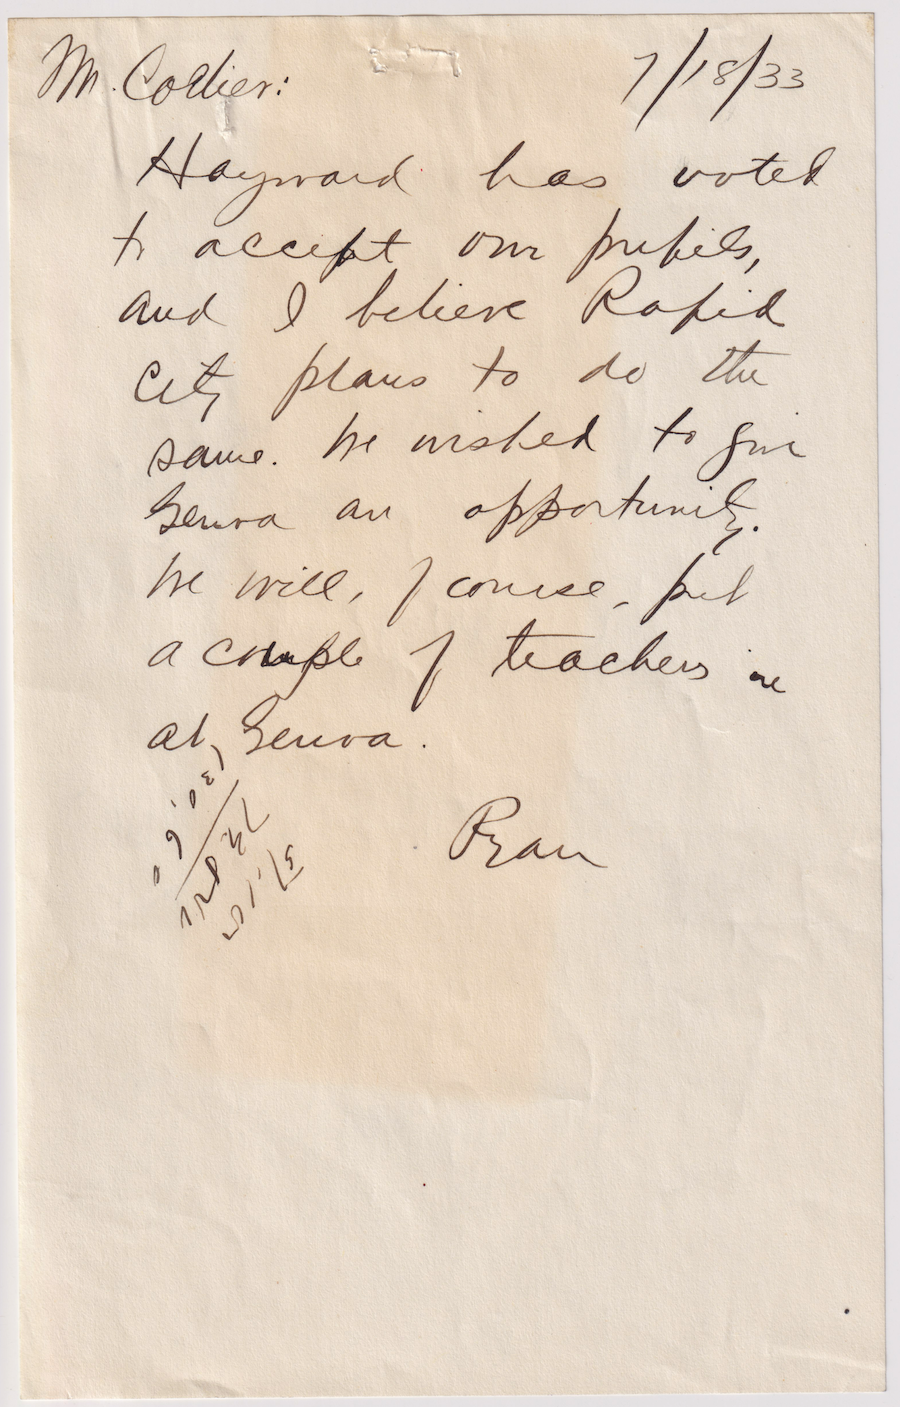 Mr. Collier:
7/18/33
Hayward has voted
to accept our pupils,
and I believe Rapid
City plans to do the
same. We wished to give
Genoa an opportunity.
We will, of course, put
a couple of teachers in
at Genoa.
Ryan